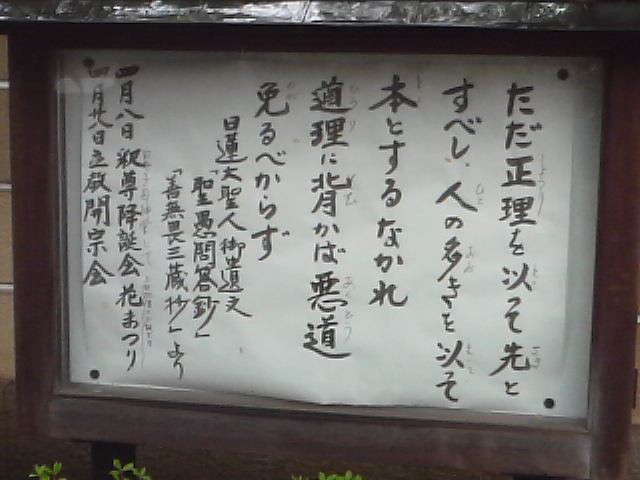 ただ正理を以て先と
すべし、人の多きを以て
本とするなかれ
道理に背かば悪道
免るべからず
日蓮大聖人御遺文
「聖愚問答鈔」
「善無畏三蔵抄」より
四月八日 釈尊降誕会 花まつり
四月廿八日 立教開宗会